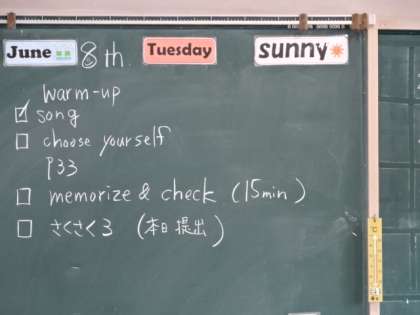 June 8th Tuesday sunny
warm-up
song
choose yourself
P33
memorize & check (15min)
さくさく3 (本日提出)